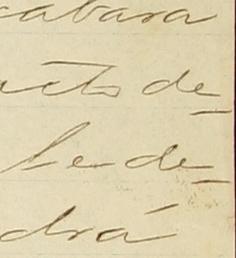 cabara
acto de_
le de_
drá